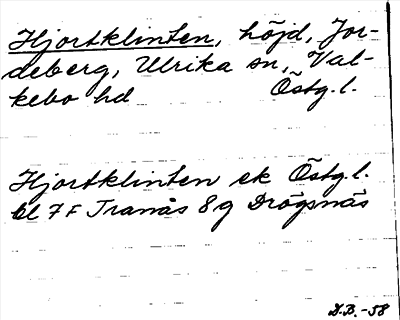 Hjortklinten, höjd, Jor-
deberg, Ulrika sn, Val-
kebo hd Östg.l.
Hjortklinten ek Östg.l.
bl 7F Tranås 8g Drögsnäs
D.B.-58